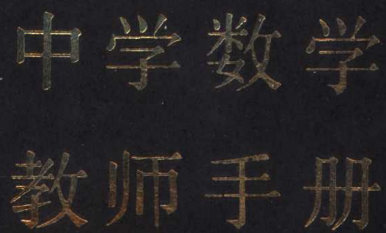 中学数学
教师手册